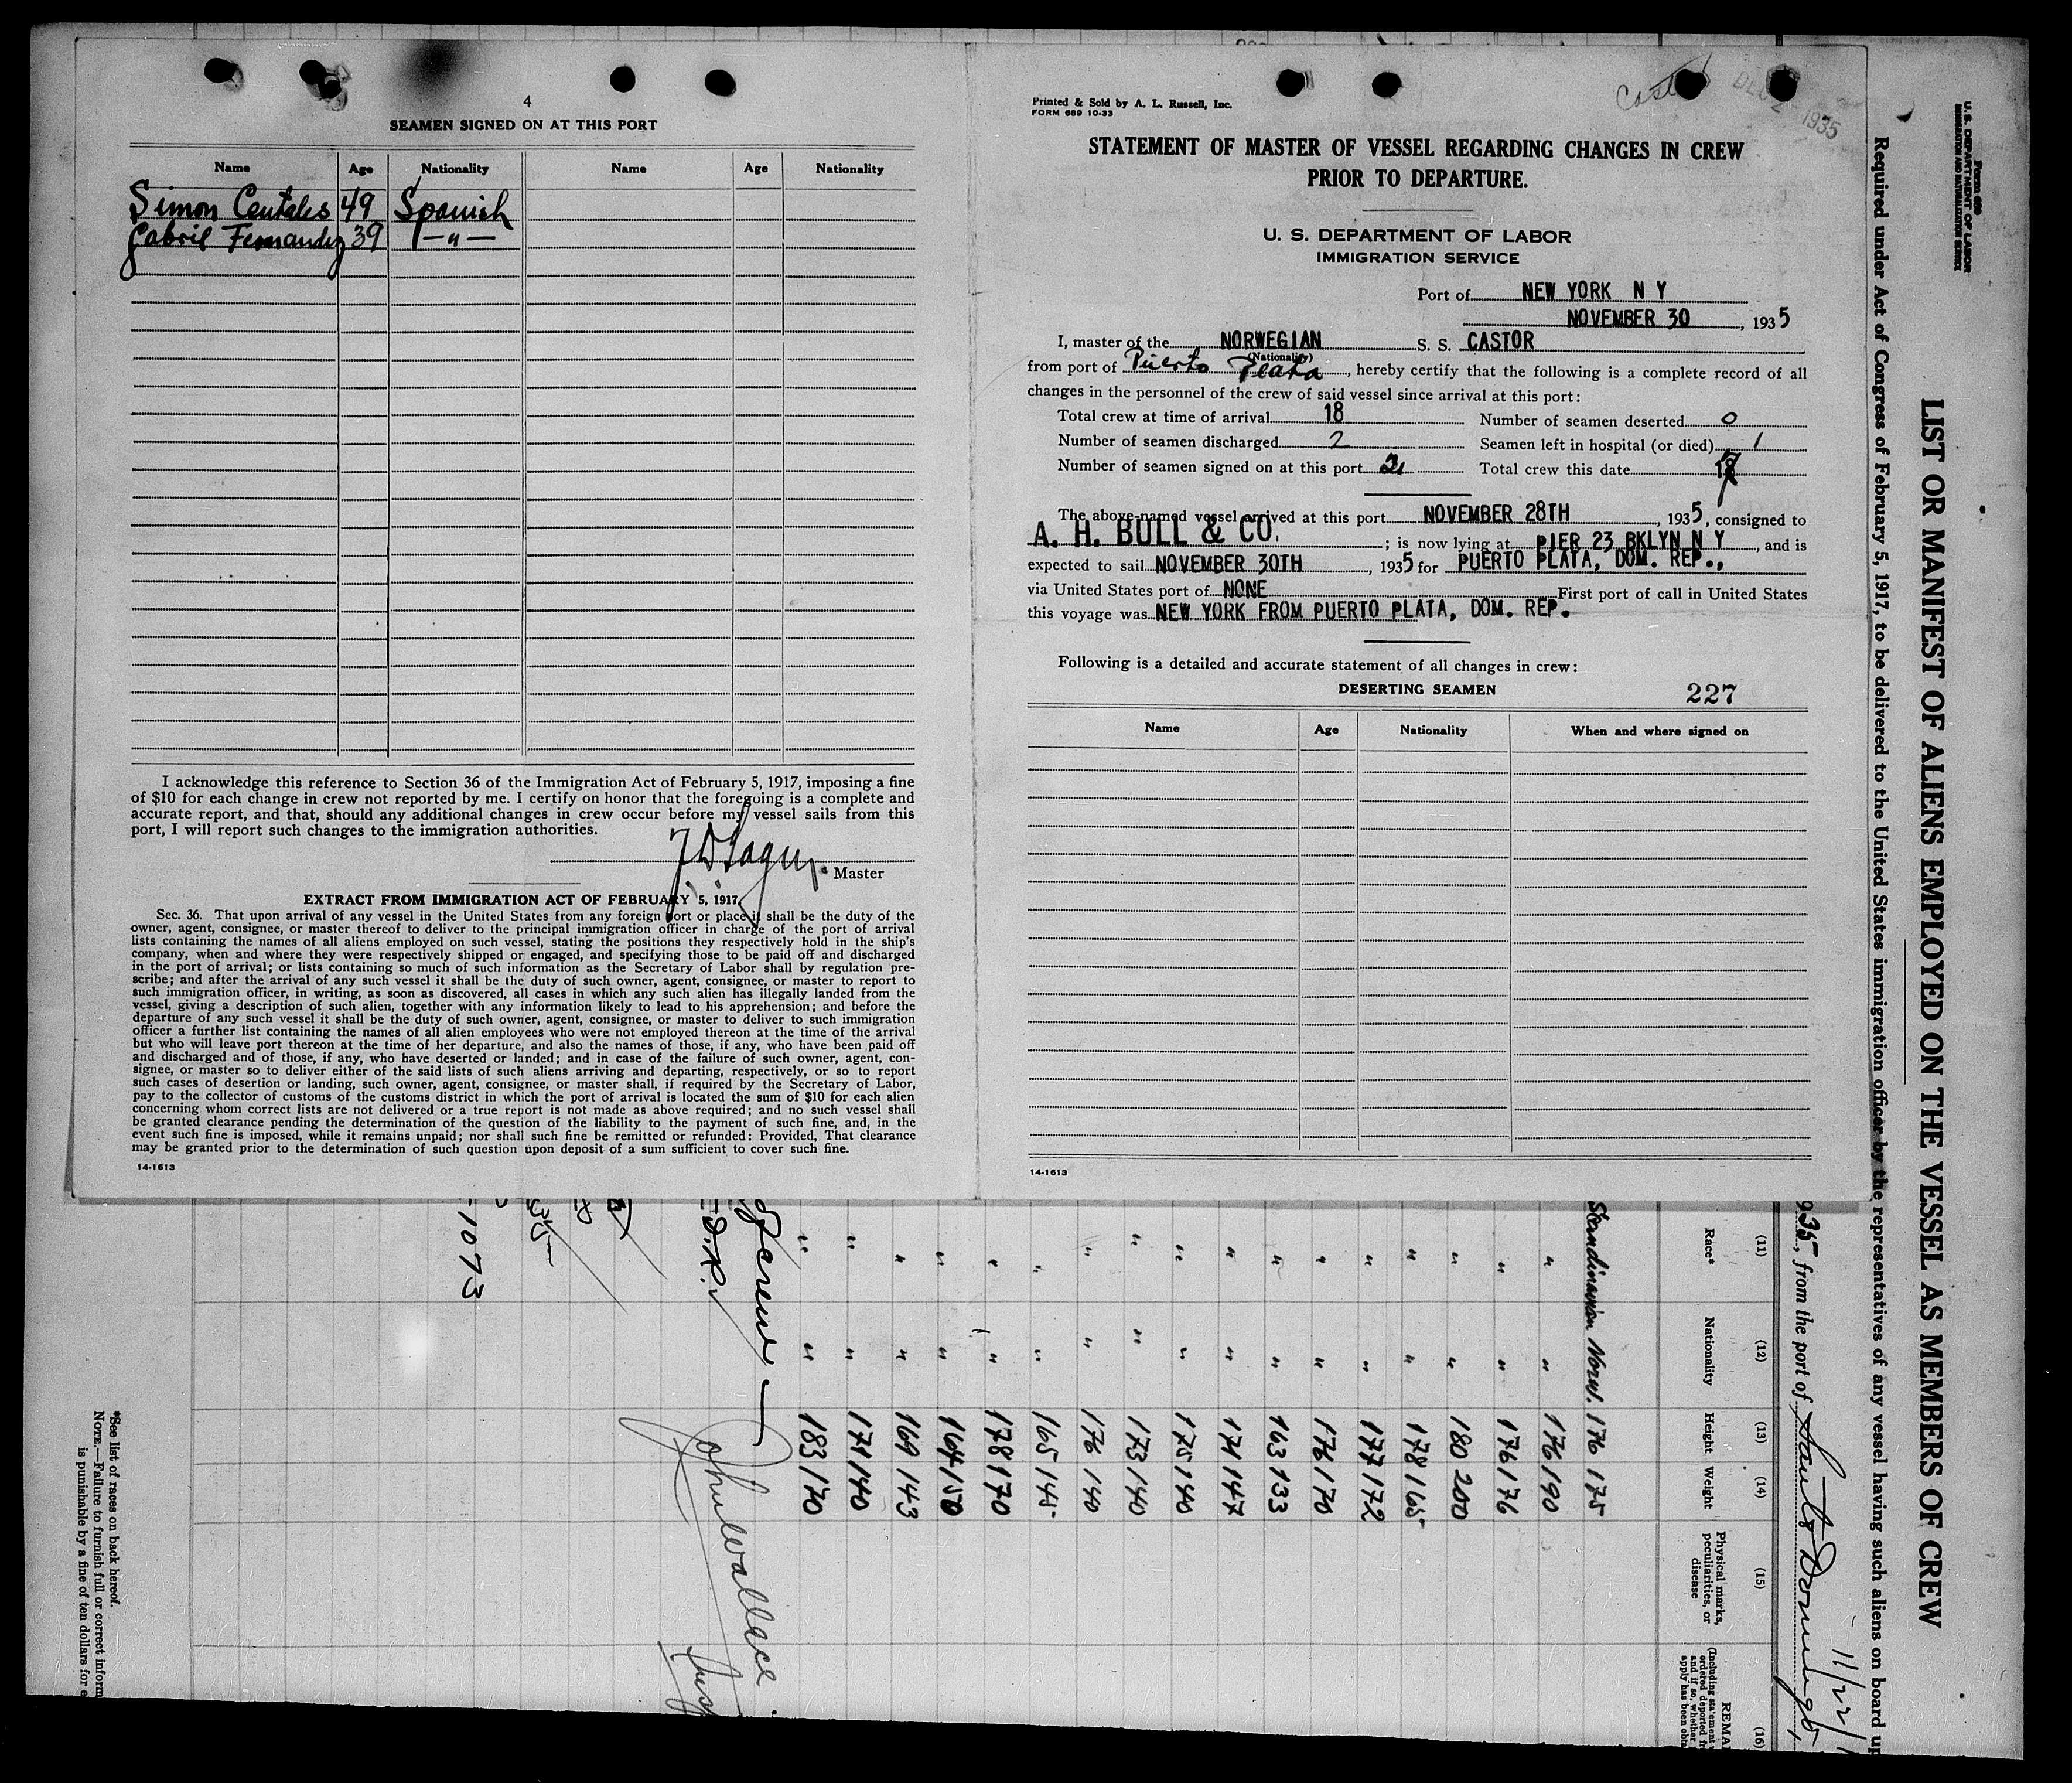 4
SEAMEN SIGNED ON AT THIS PORT
Name Age Nationality Name Age Nationality
Simon Centeles 49 Spanish
Gabril Fernandez 39 — " —
I acknowledge this reference to Section 36 of the Immigration Act of February 5, 1917, imposing a fine
of $10 for each change in crew not reported by me. I certify on honor that the foregoing is a complete and
accurate report, and that, should any additional changes in crew occur before my vessel sails from this
port, I will report such changes to the immigration authorities.
Master
EXTRACT FROM IMMIGRATION ACT OF FEBRUARY 5, 1917.
Sec. 36. That upon arrival of any vessel in the United States from any foreign port or place it shall be the duty of the
owner, agent, consignee, or master thereof to deliver to the principal immigration officer in charge of the port of arrival
lists containing the names of all aliens employed on such vessel, stating the positions they respectively hold in the ship's
company, when and where they were respectively shipped or engaged, and specifying those to be paid off and discharged
in the port of arrival; or lists containing so much of such information as the Secretary of Labor shall by regulation pre-
scribe; and after the arrival of any such vessel it shall be the duty of such owner, agent, consignee, or master to report to
such immigration officer, in writing, as soon as discovered, all cases in which any such alien has illegally landed from the
vessel, giving a description of such alien, together with any information likely to lead to his apprehension; and before the
departure of any such vessel it shall be the duty of such owner, agent, consignee, or master to deliver to such immigration
officer a further list containing the names of all alien employees who were not employed thereon at the time of the arrival
but who will leave port thereon at the time of her departure, and also the names of those, if any, who have been paid off
and discharged and of those, if any, who have deserted or landed; and in case of the failure of such owner, agent, con-
signee, or master so to deliver either of the said lists of such aliens arriving and departing, respectively, or so to report
such cases of desertion or landing, such owner, agent, consignee, or master shall, if required by the Secretary of Labor,
pay to the collector of customs of the customs district in which the port of arrival is located the sum of $10 for each alien
concerning whom correct lists are not delivered or a true report is not made as above required; and no such vessel shall
be granted clearance pending the determination of the question of the liability to the payment of such fine, and, in the
event such fine is imposed, while it remains unpaid; nor shall such fine be remitted or refunded: Provided, That clearance
may be granted prior to the determination of such question upon deposit of a sum sufficient to cover such fine.
14-1613
Printed & Sold by A. L. Russell, Inc.
FORM 689 10-33
DEC 2 1935
STATEMENT OF MASTER OF VESSEL REGARDING CHANGES IN CREW
PRIOR TO DEPARTURE.
U. S. DEPARTMENT OF LABOR
IMMIGRATION SERVICE
Port of NEW YORK N Y
NOVEMBER 30, 1935
I, master of the NORWEGIAN S. S. CASTOR
(Nationality)
from port of Puerto Plata, hereby certify that the following is a complete record of all
changes in the personnel of the crew of said vessel since arrival at this port:
Total crew at time of arrival 18 Number of seamen deserted 0
Number of seamen discharged 2 Seamen left in hospital (or died) 1
Number of seamen signed on at this port 2 Total crew this date 17
The above-named vessel arrived at this port NOVEMBER 28TH, 1935, consigned to
A. H. BULL & CO. ; is now lying at PIER 23 BKLYN N Y, and is
expected to sail NOVEMBER 30TH, 1935 for PUERTO PLATA, DOM. REP.,
via United States port of NONE First port of call in United States
this voyage was NEW YORK FROM PUERTO PLATA, DOM. REP.
Following is a detailed and accurate statement of all changes in crew:
DESERTING SEAMEN 227
Name Age Nationality When and where signed on
14-1613
Form 689
U. S. DEPARTMENT OF LABOR
IMMIGRATION AND NATURALIZATION SERVICE
LIST OR MANIFEST OF ALIENS EMPLOYED ON THE VESSEL AS MEMBERS OF CREW
Required under Act of Congress of February 5, 1917, to be delivered to the United States immigration officer by the representatives of any vessel having such aliens on board up
11/22/
935, from the port of Santo Domingo
(11) (12) (13) (14) (15) (16)
Race* Nationality Height Weight Physical marks, peculiarities, or disease
Scandinavian Norw. 176 175
" " 176 190
" " 176 176
" " 180 200
" " 178 165
" " 177 172
" " 176 170
" " 163 133
" " 174 147
" " 175 140
" " 173 140
" " 176 140
" " 165 145
" " 178 170
" " 164 150
" " 169 143
" " 174 140
" " 183 170
crew —
D.R.
John Wallace
1073
*See list of races on back hereof.
NOTE.—Failure to furnish full or correct inform
is punishable by a fine of ten dollars for e